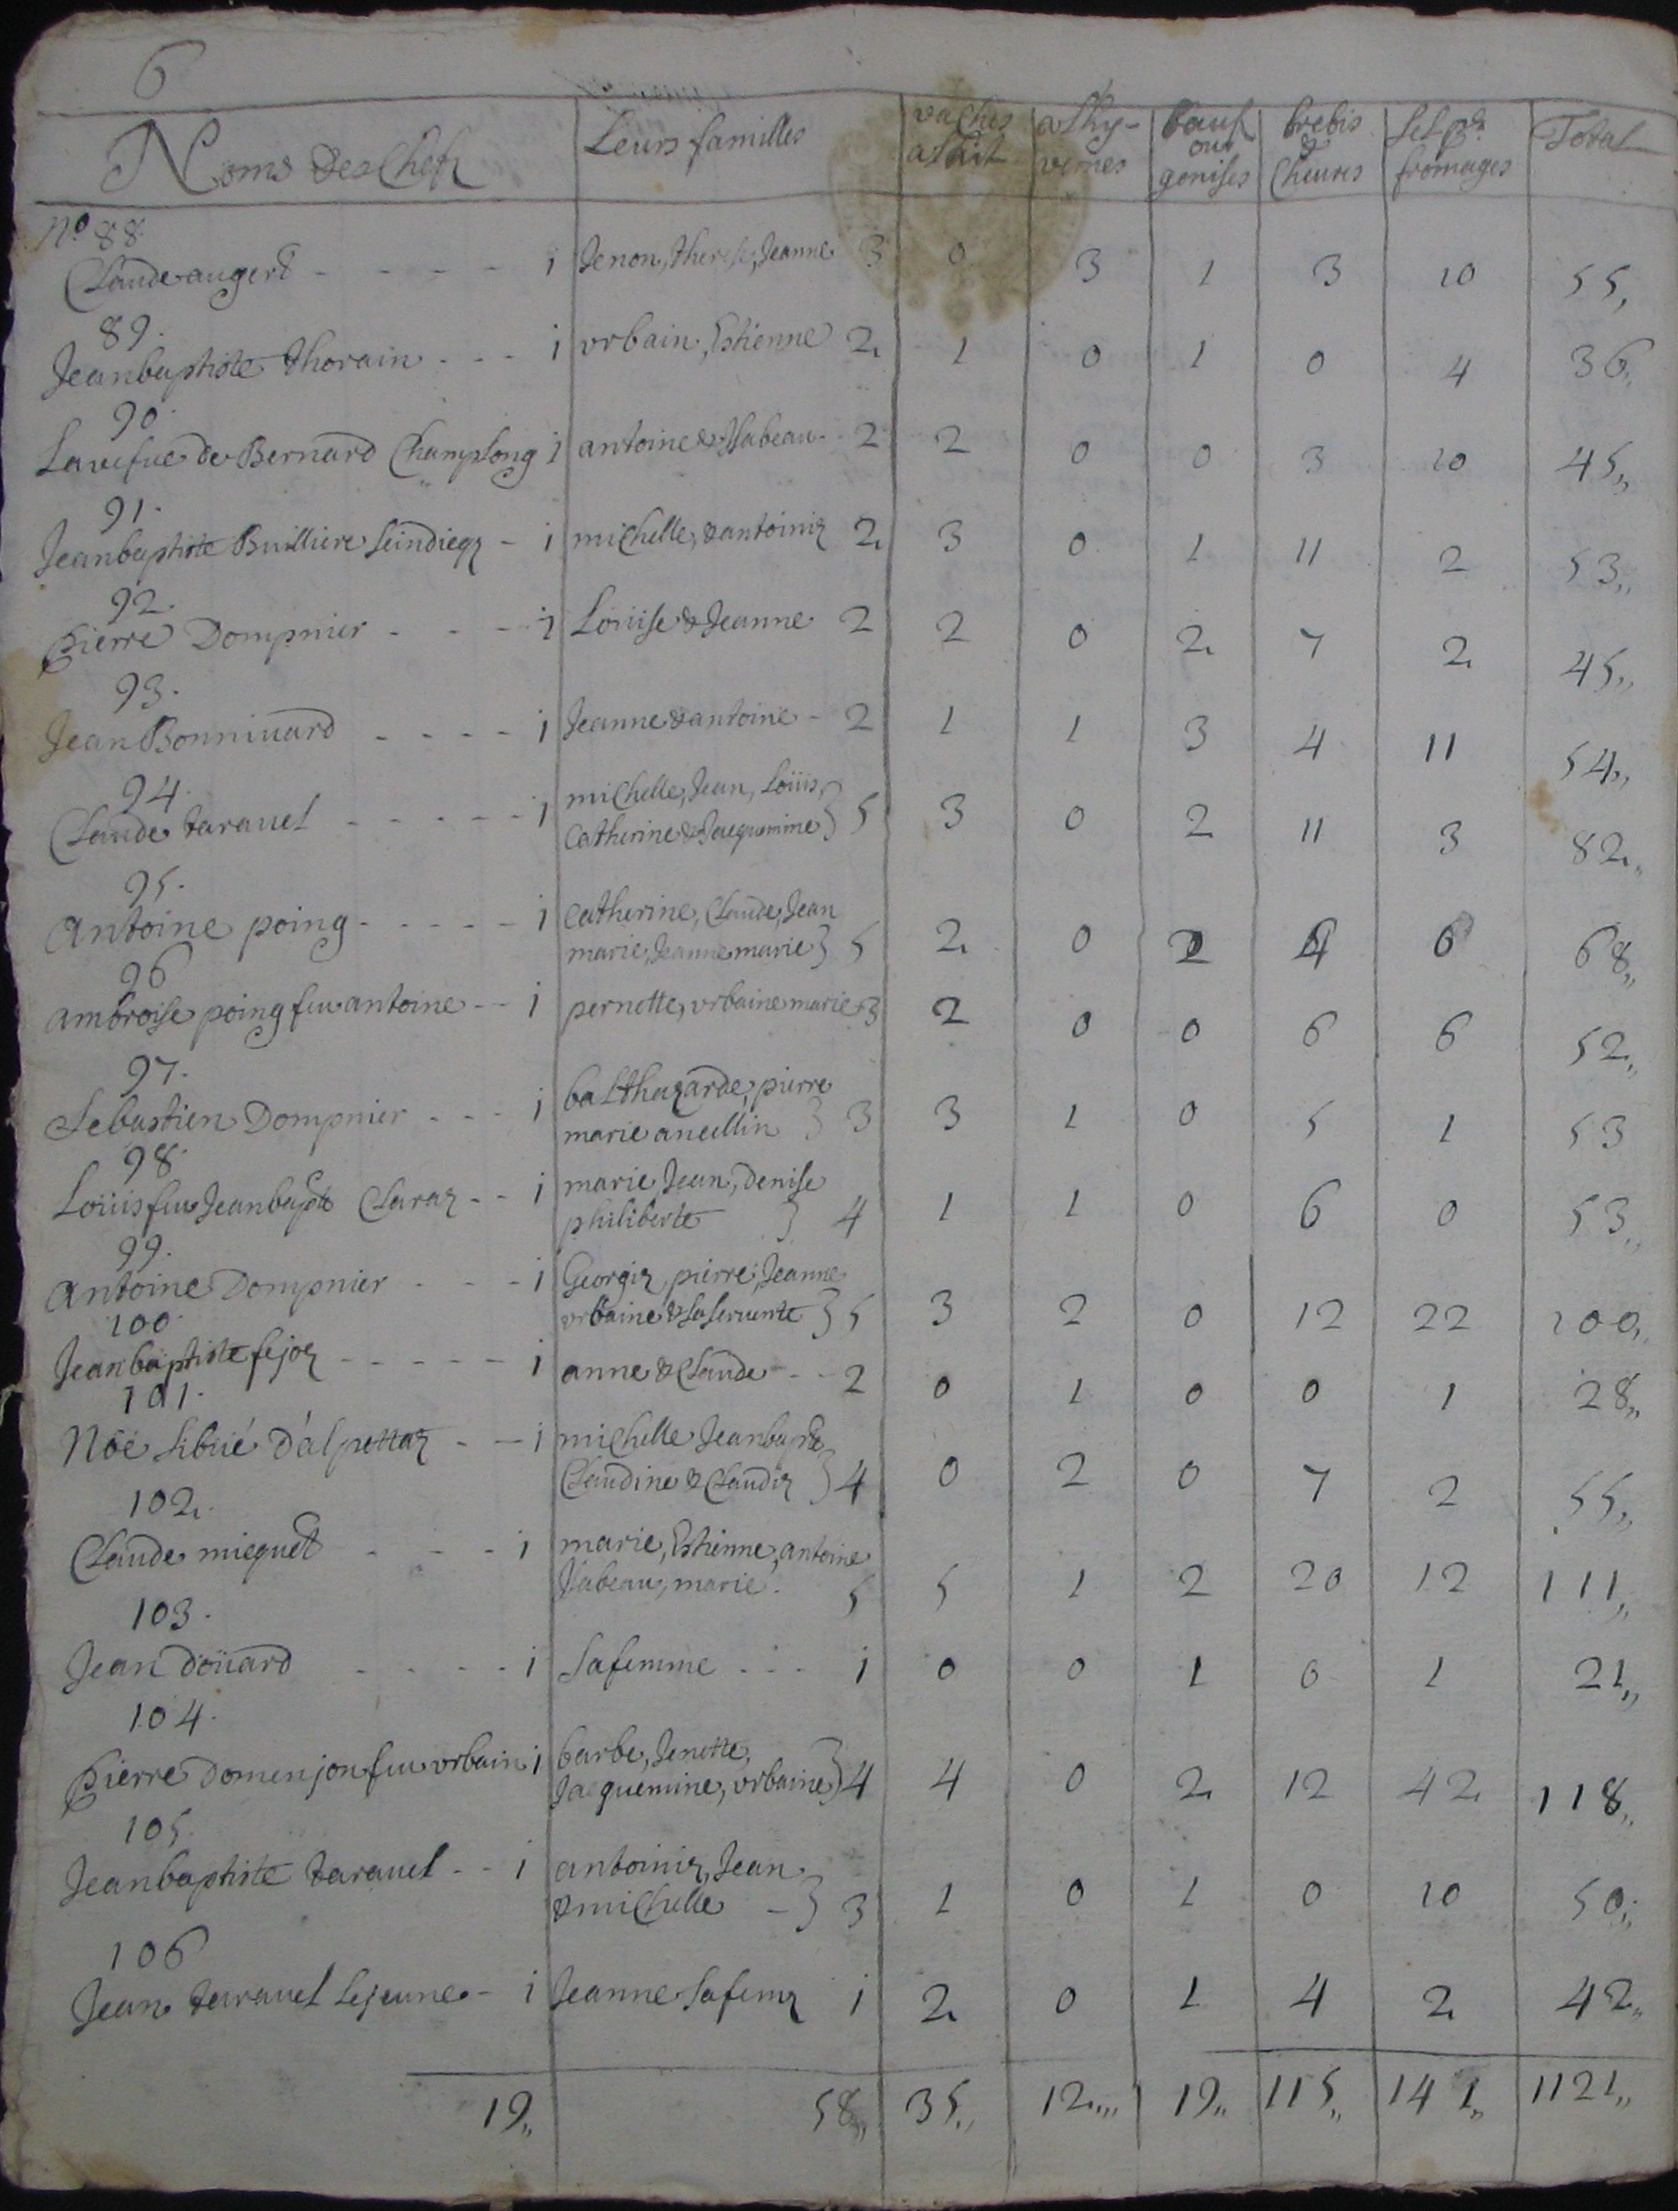 6
Noms des Chefs | Leurs familles | vaches a Lait | a Lhyvernes | bœufs ou genises | brebis & Cheures | sel pr. fromages | Total
No. 88
Claude augert - - - - 1 | Jenon, therese, Jeanne 3 | 0 | 3 | 1 | 3 | 10 | 55,
89.
Jeanbaptiste thorain - - - 1 | vrbain, Estienne 2 | 1 | 0 | 1 | 0 | 4 | 36,
90.
La vefue de Bernard Champlong 1 | antoine & Ysabeau - 2 | 2 | 0 | 0 | 3 | 10 | 45,,
91.
Jeanbaptiste Builliere seindiegz - 1 | michelle, & antoiniz 2 | 3 | 0 | 1 | 11 | 2 | 53,,
92.
Pierre Dompnier - - - 1 | Loüise & Jeanne 2 | 2 | 0 | 2 | 7 | 2 | 45,,
93.
Jean Bonniuard - - - - 1 | Jeanne & antoine - 2 | 1 | 1 | 3 | 4 | 11 | 54,,
94.
Claude tarauel - - - - - 1 | michelle, Jean, Loüis,
Catherine & Jacquemine } 5 | 3 | 0 | 2 | 11 | 3 | 82,,
95.
antoine poing - - - - - 1 | Catherine, Claude, Jean
marie, Jeanne marie } 5 | 2 | 0 | 2 | 4 | 6 | 68,,
96
ambroise poing feu antoine - - 1 | pernette, vrbaine marie 3 | 2 | 0 | 0 | 6 | 6 | 52,,
97.
Sebastien Dompnier - - - 1 | balthazarde, pierre
marie ancellin } 3 | 3 | 1 | 0 | 5 | 1 | 53
98.
Loüis feu Jeanbapte Claraz - - 1 | marie Jean, Denise
philiberte } 4 | 1 | 1 | 0 | 6 | 0 | 53,,
99.
antoine Dompnier - - - 1 | Georgiz, pierre, Jeanne
vrbaine & sa seruente } 5 | 3 | 2 | 0 | 12 | 22 | 100,,
100.
Jeanbaptiste fejoz - - - - - 1 | anne & Claude - - 2 | 0 | 1 | 0 | 0 | 1 | 28,,
101.
Noé sibüé d'alpettaz - - 1 | michelle Jeanbapte
Claudine & Claudiz } 4 | 0 | 2 | 0 | 7 | 2 | 55,,
102.
Claude miequet - - - 1 | marie, Estienne, antoine
Isabeau, marie. 5 | 5 | 1 | 2 | 20 | 12 | 111,,
103.
Jean doüard - - - - 1 | Sa femme - - - 1 | 0 | 0 | 1 | 0 | 1 | 21,,
104.
Pierre Domenjon feu vrbain 1 | barbe, Jenette,
Jaequemine, vrbaine } 4 | 4 | 0 | 2 | 12 | 42 | 118,,
105.
Jeanbaptiste tarauel - - 1 | antoiniz, Jean
& michelle - } 3 | 1 | 0 | 1 | 0 | 10 | 50,,
106
Jean tarauel Lejeune - 1 | Jeanne sa femz 1 | 2 | 0 | 1 | 4 | 2 | 42,,
19,, | 58,, | 35,, | 12,,, | 19,, | 115,, | 141,, | 1121,,